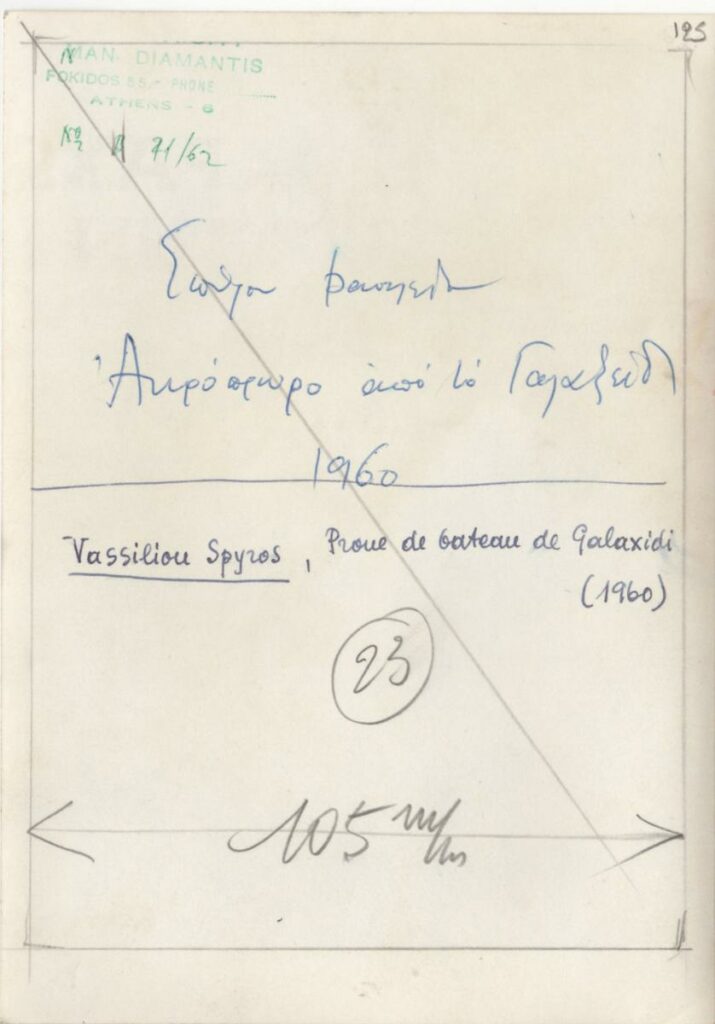 195
MAN. DIAMANTIS
FOKIDOS 55,- PHONE
ATHENS - 6
Nº A 71/62
Σπύρου Βασιλείου
Ἀκρόπρωρο ἀπό τό Γαλαξείδι
1960
Vassiliou Spyros, Proue de bateau de Galaxidi
(1960)
23
105 m/m